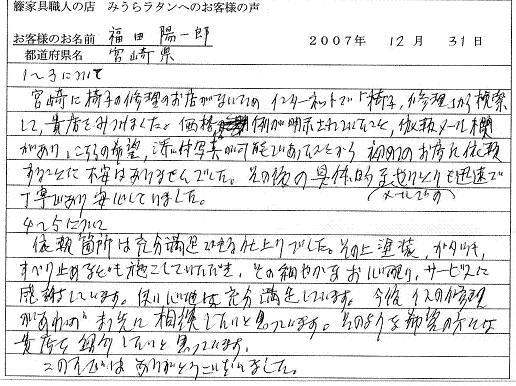 籐家具職人の店 みうらラタンへのお客様の声
お客様のお名前 福田 陽一郎 2007年 12月 31日
都道府県名 宮崎県
1~3について
宮崎に椅子の修理のお店がないため インターネットで「椅子,修理」から検索
して,貴店をみつけました。価格 例が明示されていたこと,依頼メール欄
があり,こちらの希望,添付写真が可能であったことから 初めてのお店に依頼
することに不安はありませんでした。その後の具体的なやりとりも迅速で
(メールでの)
丁寧であり安心していました。
4~5について
依頼箇所は充分満足できる仕上りでした。その上塗装,ガタツキ,
すべり止めなども施こしていただき,その細やかなお心配り,サービスに
感謝しています。使い心地は充分満足しています。今後イスの修理
があれば まっ先に相談したいと思っています。そのような希望の方には
貴店を紹介したいと思っています。
このたびは ありがとうございました。